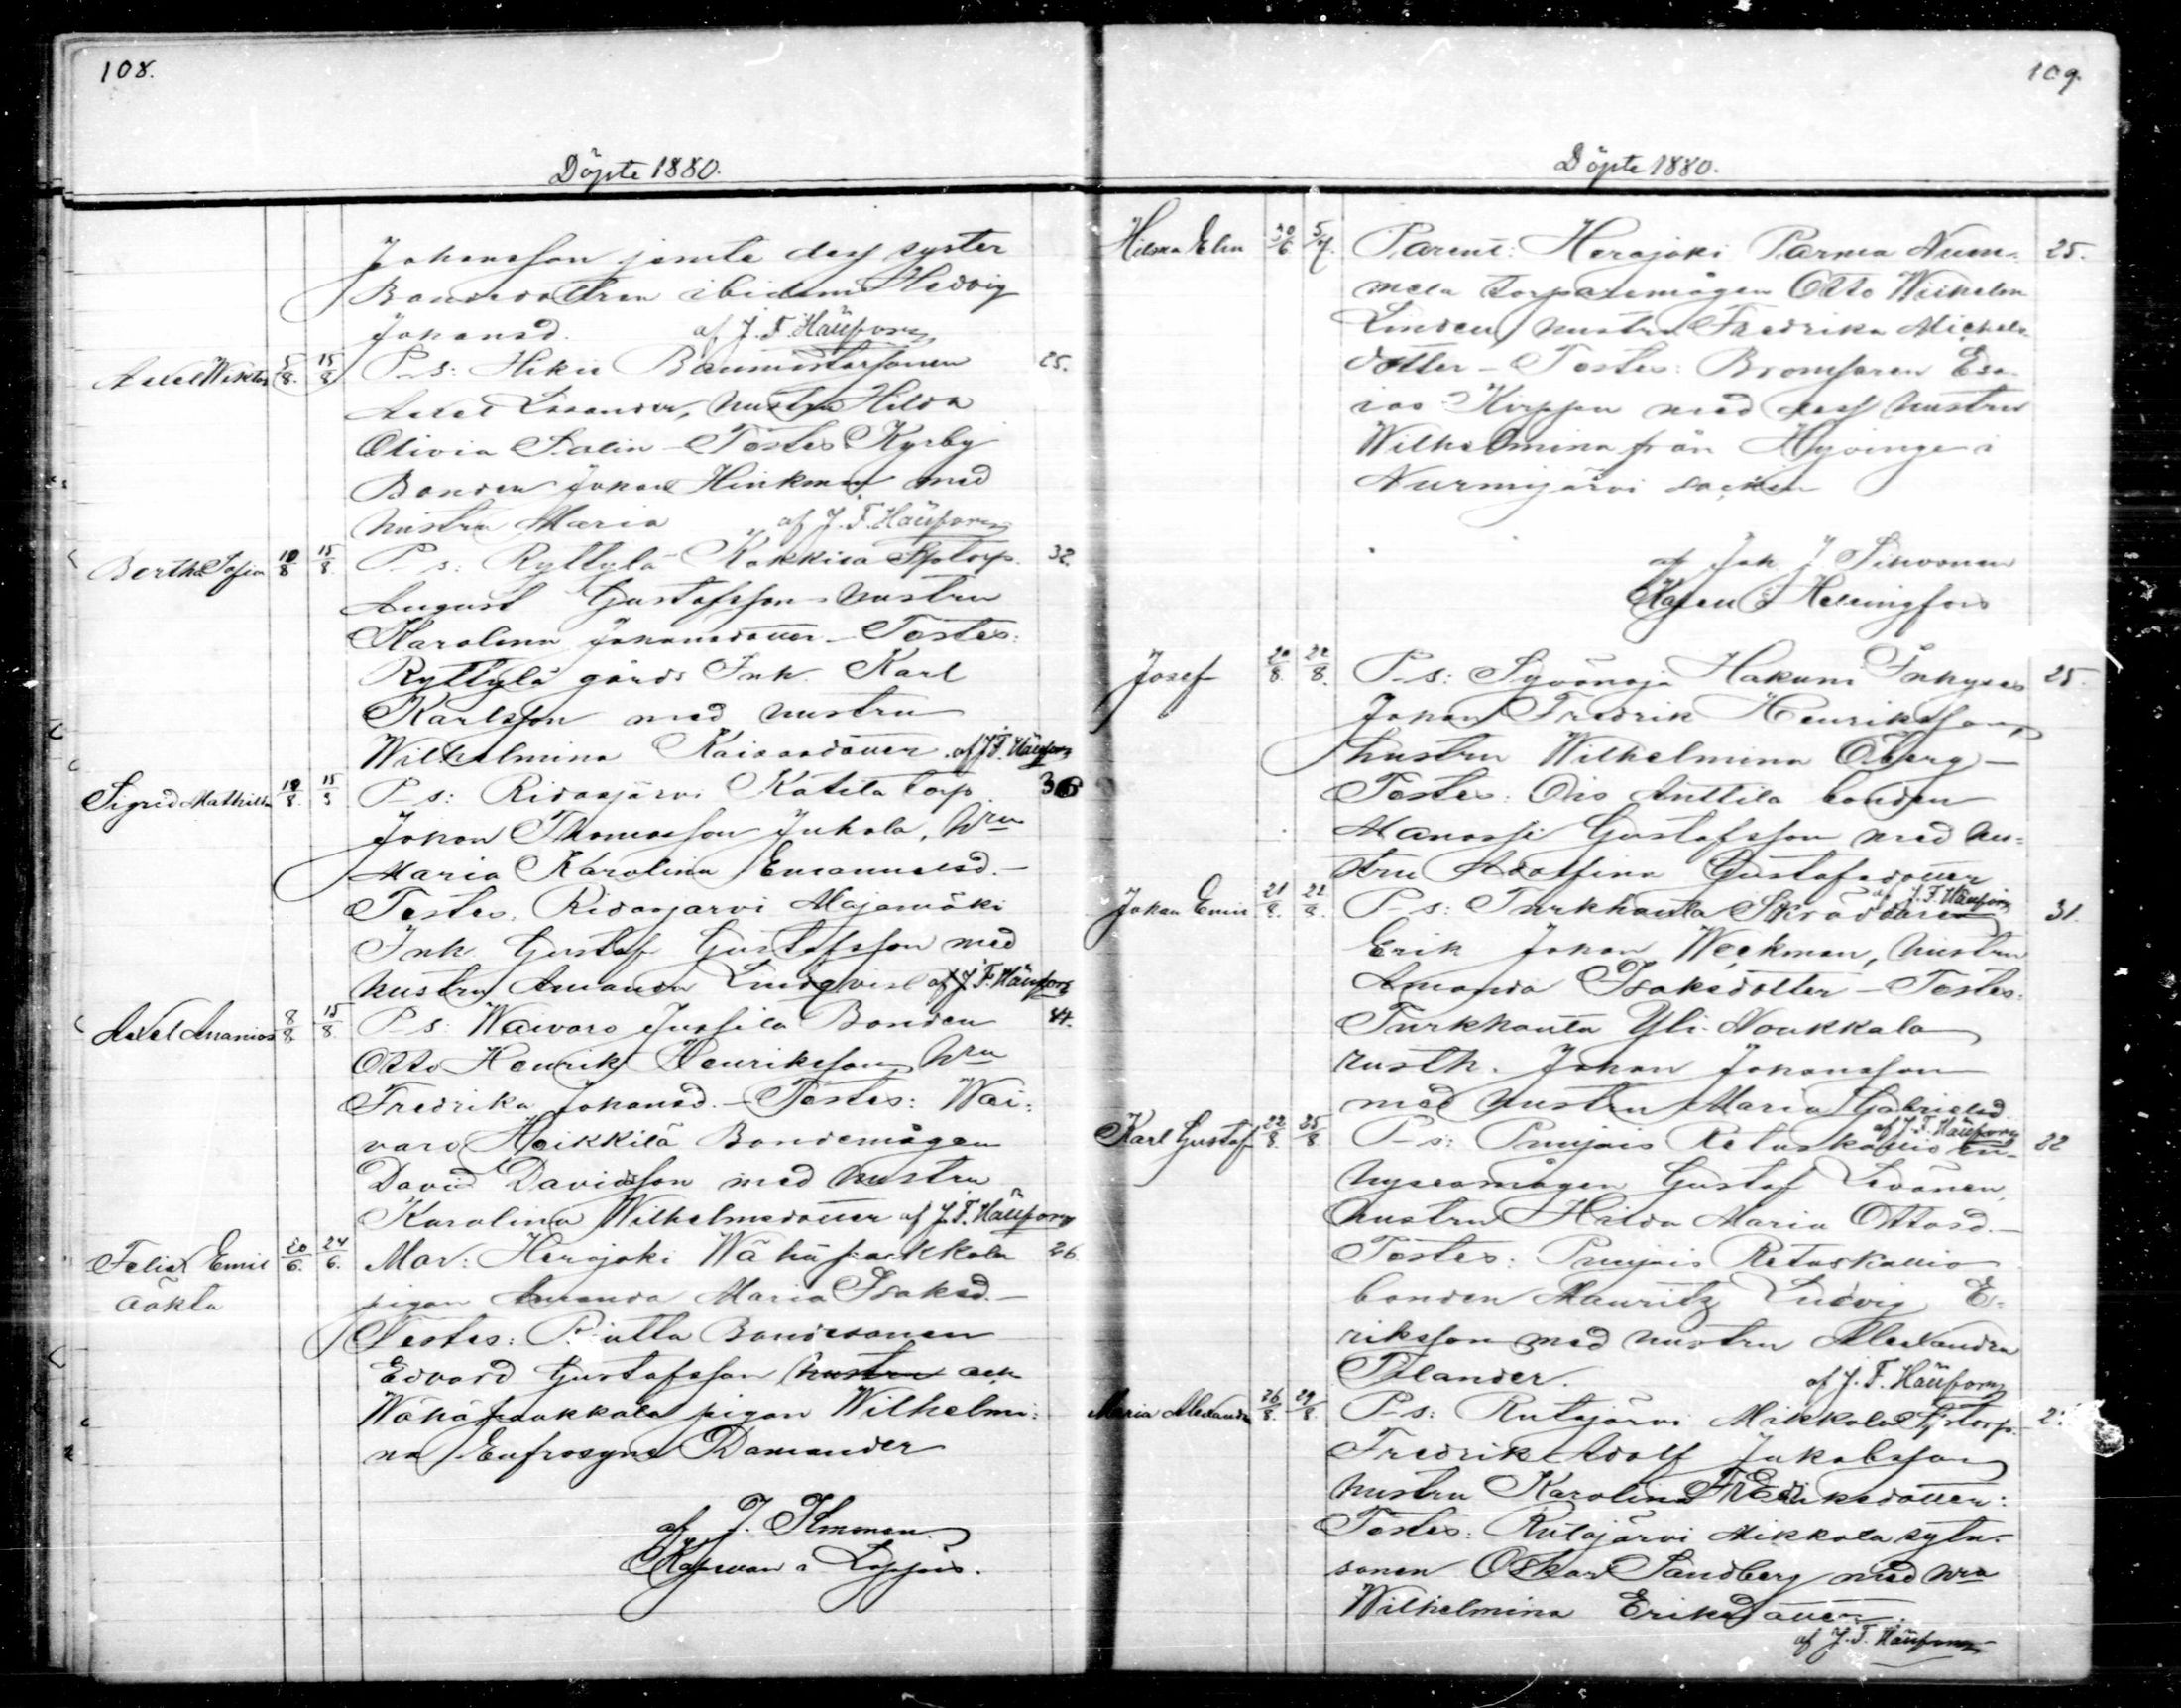 108.
Döpte 1880.
Johansson jemte dess syster
Bondedottren ibidem Hedvig
Johansd. af J. F. Häufors
Axel Wiktor 5/8. 15/8 P-s: Hikie Banmästarsonen 25.
Axel Lisander, hustru Hilda
Olivia Stalin - Testes Kyrby
Bonden Johan Hinkman med
hustru Maria af J. F. Häufors
Bertha Sofia 10/8 15/8. P-s: Ryttylä Kokkila torp. 32.
August Gustafsson hustru
Karolina Johansdotter - Testes:
Ryttylä gårds Inh. Karl
Karlsson med hustru
Wilhelmina Kaisasdotter af J. F. Häufors
Sigrid Mathilda 10/8. 15/8 P-s: Ridasjärvi Katila torp 36
Johan Thomasson Juhola, hru
Maria Karolina Emanuelsd. -
Testes. Ridasjärvi Majamäki
Inh. Gustaf Gustafsson med
hustru Amanda Lindqvist af J. F. Häufors
Axel Ananias 8/8 15/8. P-s: Waivaro Jussila Bonden 44.
Otto Henrik Henriksson, hru
Fredrika Johansd. - Testes: Wai=
varo Heikkilä Bondemågen
David Davidsson med hustru
Karolina Wilhelmsdotter af J. F. Häufors
Felix Emil 20/6. 24/6. Mor: Herajoki Wähäpakkala 26
oäkta pigan Amanda Maria Isaksd. -
Testes: Bondesonen
Edvard Gustafsson hustru och
Wähäpakkala pigan Wilhelmi=
na Eufrosyne Damander
af J.
Kapellan i Loppis.
109.
Döpte 1880.
Hilma Elin 30/6 5/7. Parent: Herajoki Parma Num= 25.
mela torparemågen Otto Wilhelm
Linden, hustru Fredrika Michels
dotter - Testes: Bromsaren Esa=
ias Kirppu med dess hustru
Wilhelmina från Hyvinge i
Nurmijärvi socken
af Joh. J. Sihvonen
i Helsingfors
Josef 20/8. 22/8. P-s: Syvänoja Hakuni Inhyses 25.
Johan Fredrik Henriksson,
hustru Wilhelmina Öberg -
Testes: Ois Anttila bonden
Manasse Gustafsson med hu=
stru Adolfina Gustafsdotter
af J. F. Häufors
Johan Emil 21/8. 22/8. P-s: Turkhauta Skräddaren 31.
Erik Johan Weckman, hustru
Amanda Isaksdotter - Testes:
Turkhauta Yli-Noukkala
rusth. Johan Johansson
med hustru Maria Gabrielsd.
af J. F. Häufors
Karl Gustaf 22/8. 25/8 P-s: Puujais Retuskallio in= 22
hysesmågen Gustaf Levänen,
hustru Hilda Maria Ottosd. -
Testes: Puujais Retuskallio
bonden Mauritz Ludvig E=
riksson med hustru Alexandra
Tilander. af J. F. Häufors
Maria Alexandra 26/8. 29/8. P-s: Rutajärvi Mikkola torp.
Fredrik Adolf Jakobsson
hustru Karolina Fredriksdotter:
Testes: Rutajärvi Mikkola sytn.
sonen Oskar Sandberg med hru
Wilhelmina Eriksdotter.
af J. F. Häufors